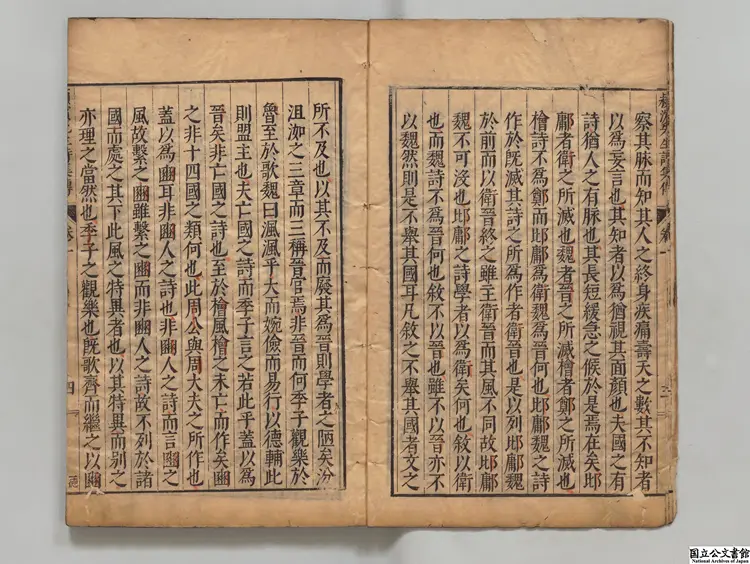 察其脉而知其人之終身疾痛壽夭之數其不知者
以爲妄言也其知者以爲猶視其面顏也夫國之有
詩猶人之有脉也其長短緩急之候於是焉在矣邶
鄘者衛之所滅也魏者晉之所滅檜者鄭之所滅也
檜詩不爲鄭而邶鄘爲衛魏爲晉何也邶鄘魏之詩
作於旣滅其詩之所爲作者衛晉也是以列邶鄘魏
於前而以衛晉終之雖主衛晉而其風不同故邶鄘
魏不可没也邶鄘之詩學者以爲衛矣何也敘以衛
也而魏詩不爲晉何也敘不以晉也雖不以晉亦不
以魏然則是不舉其國耳凡敘之不舉其國者文之
所不及也以其不及而廢其爲晉則學者之陋矣汾
沮洳之三章而三稱晉官焉非晉而何季子觀樂於
魯至於歌魏曰渢渢乎大而婉儉而易行以德輔此
則盟主也夫亡國之詩而季子言之若此乎蓋以爲
晉矣非亡國之詩也至於檜風檜之未亡而作矣豳
之非十四國之類何也此周公與周大夫之所作也
蓋以爲豳耳非豳人之詩也非豳人之詩而言豳之
風故繫之豳雖繫之豳而非豳人之詩故不列於諸
國而處之其下此風之特異者也以其特異而别之
亦理之當然也季子之觀樂也旣歌齊而繼之以豳
卷一
四
国立公文書館
National Archives of Japan